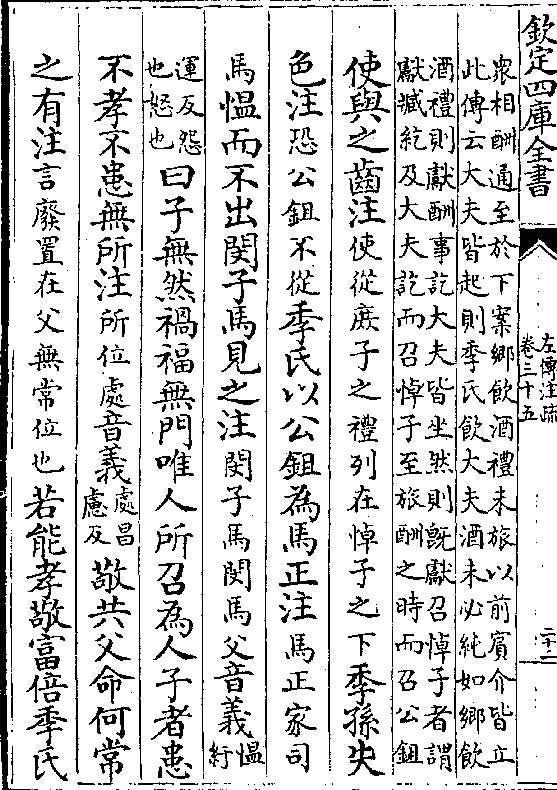 欽定四庫全書
左傳注疏
卷三十五
二十二
衆相酬通至於下案鄉飲酒禮未旅以前賓介皆立
此傳云大夫皆起則季氏飲大夫酒未必純如鄉飲
酒禮則獻酬事訖大夫皆坐然則旣獻召悼子者謂
獻臧紇及大夫訖而召悼子至旅酬之時而召公鉏
使與之齒注使從庶子之禮列在悼子之下季孫失
色注恐公鉏不從季氏以公鉏為馬正注馬正家司
馬愠而不出閔子馬見之注閔子馬閔馬父音義愠紆
運反怨
也怒也曰子無然禍福無門唯人所召為人子者患
不孝不患無所注所位處音義處昌
慮反敬共父命何常
之有注言廢置在父無常位也若能孝敬富倍季氏